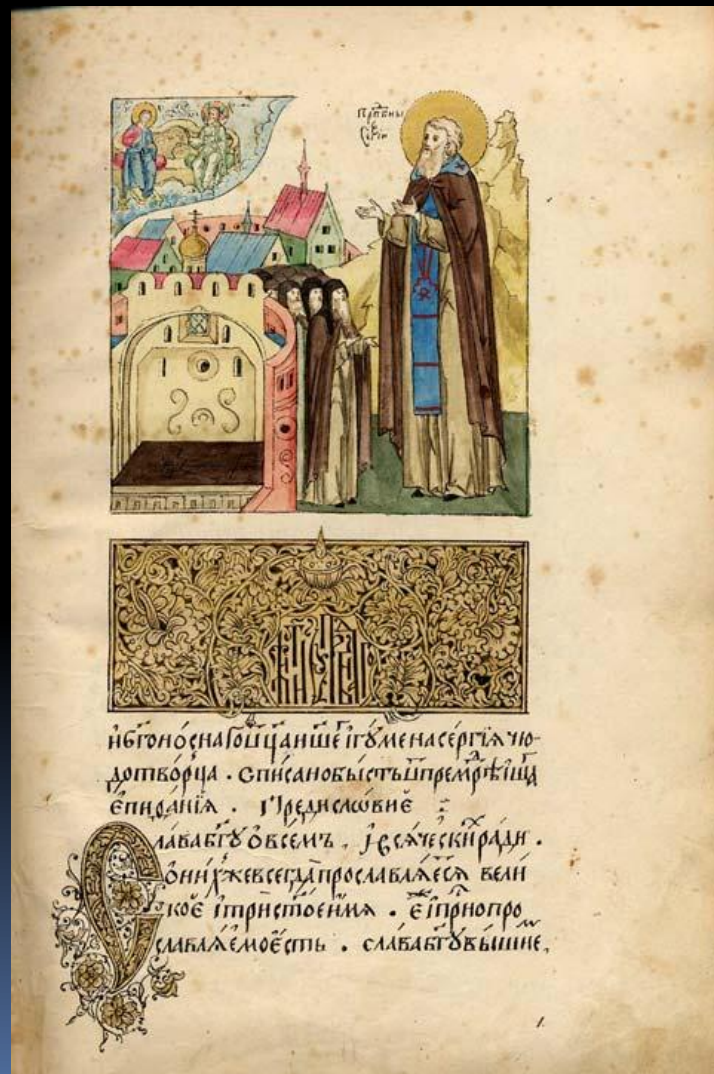 Прпбны
Сергiи
Житiе преподобнаго
и҆ бг҃оноснаго ѿц҃а нш҃его і҆гꙋ́мена се́ргїѧ чю-
дотво́рца . Списано бы́сть ѿ прем꙯рѣ́йша
Є҆пифа́нїѧ . Предисло́вие :
Сла́ва бг҃ꙋ ѡ҆ всемъ , і҆ всѧ́чески́х ради .
ѡ ни́х же всегда̀ прославлѧ́еⷭ҇сѧ вели
кое і҆ трист҃о́е и҆́мѧ . є҆́же и҆ при́сно про
славлѧ́емо є҆́сть . сла́ва бг҃ꙋ вы́шнеⷨ,
1.